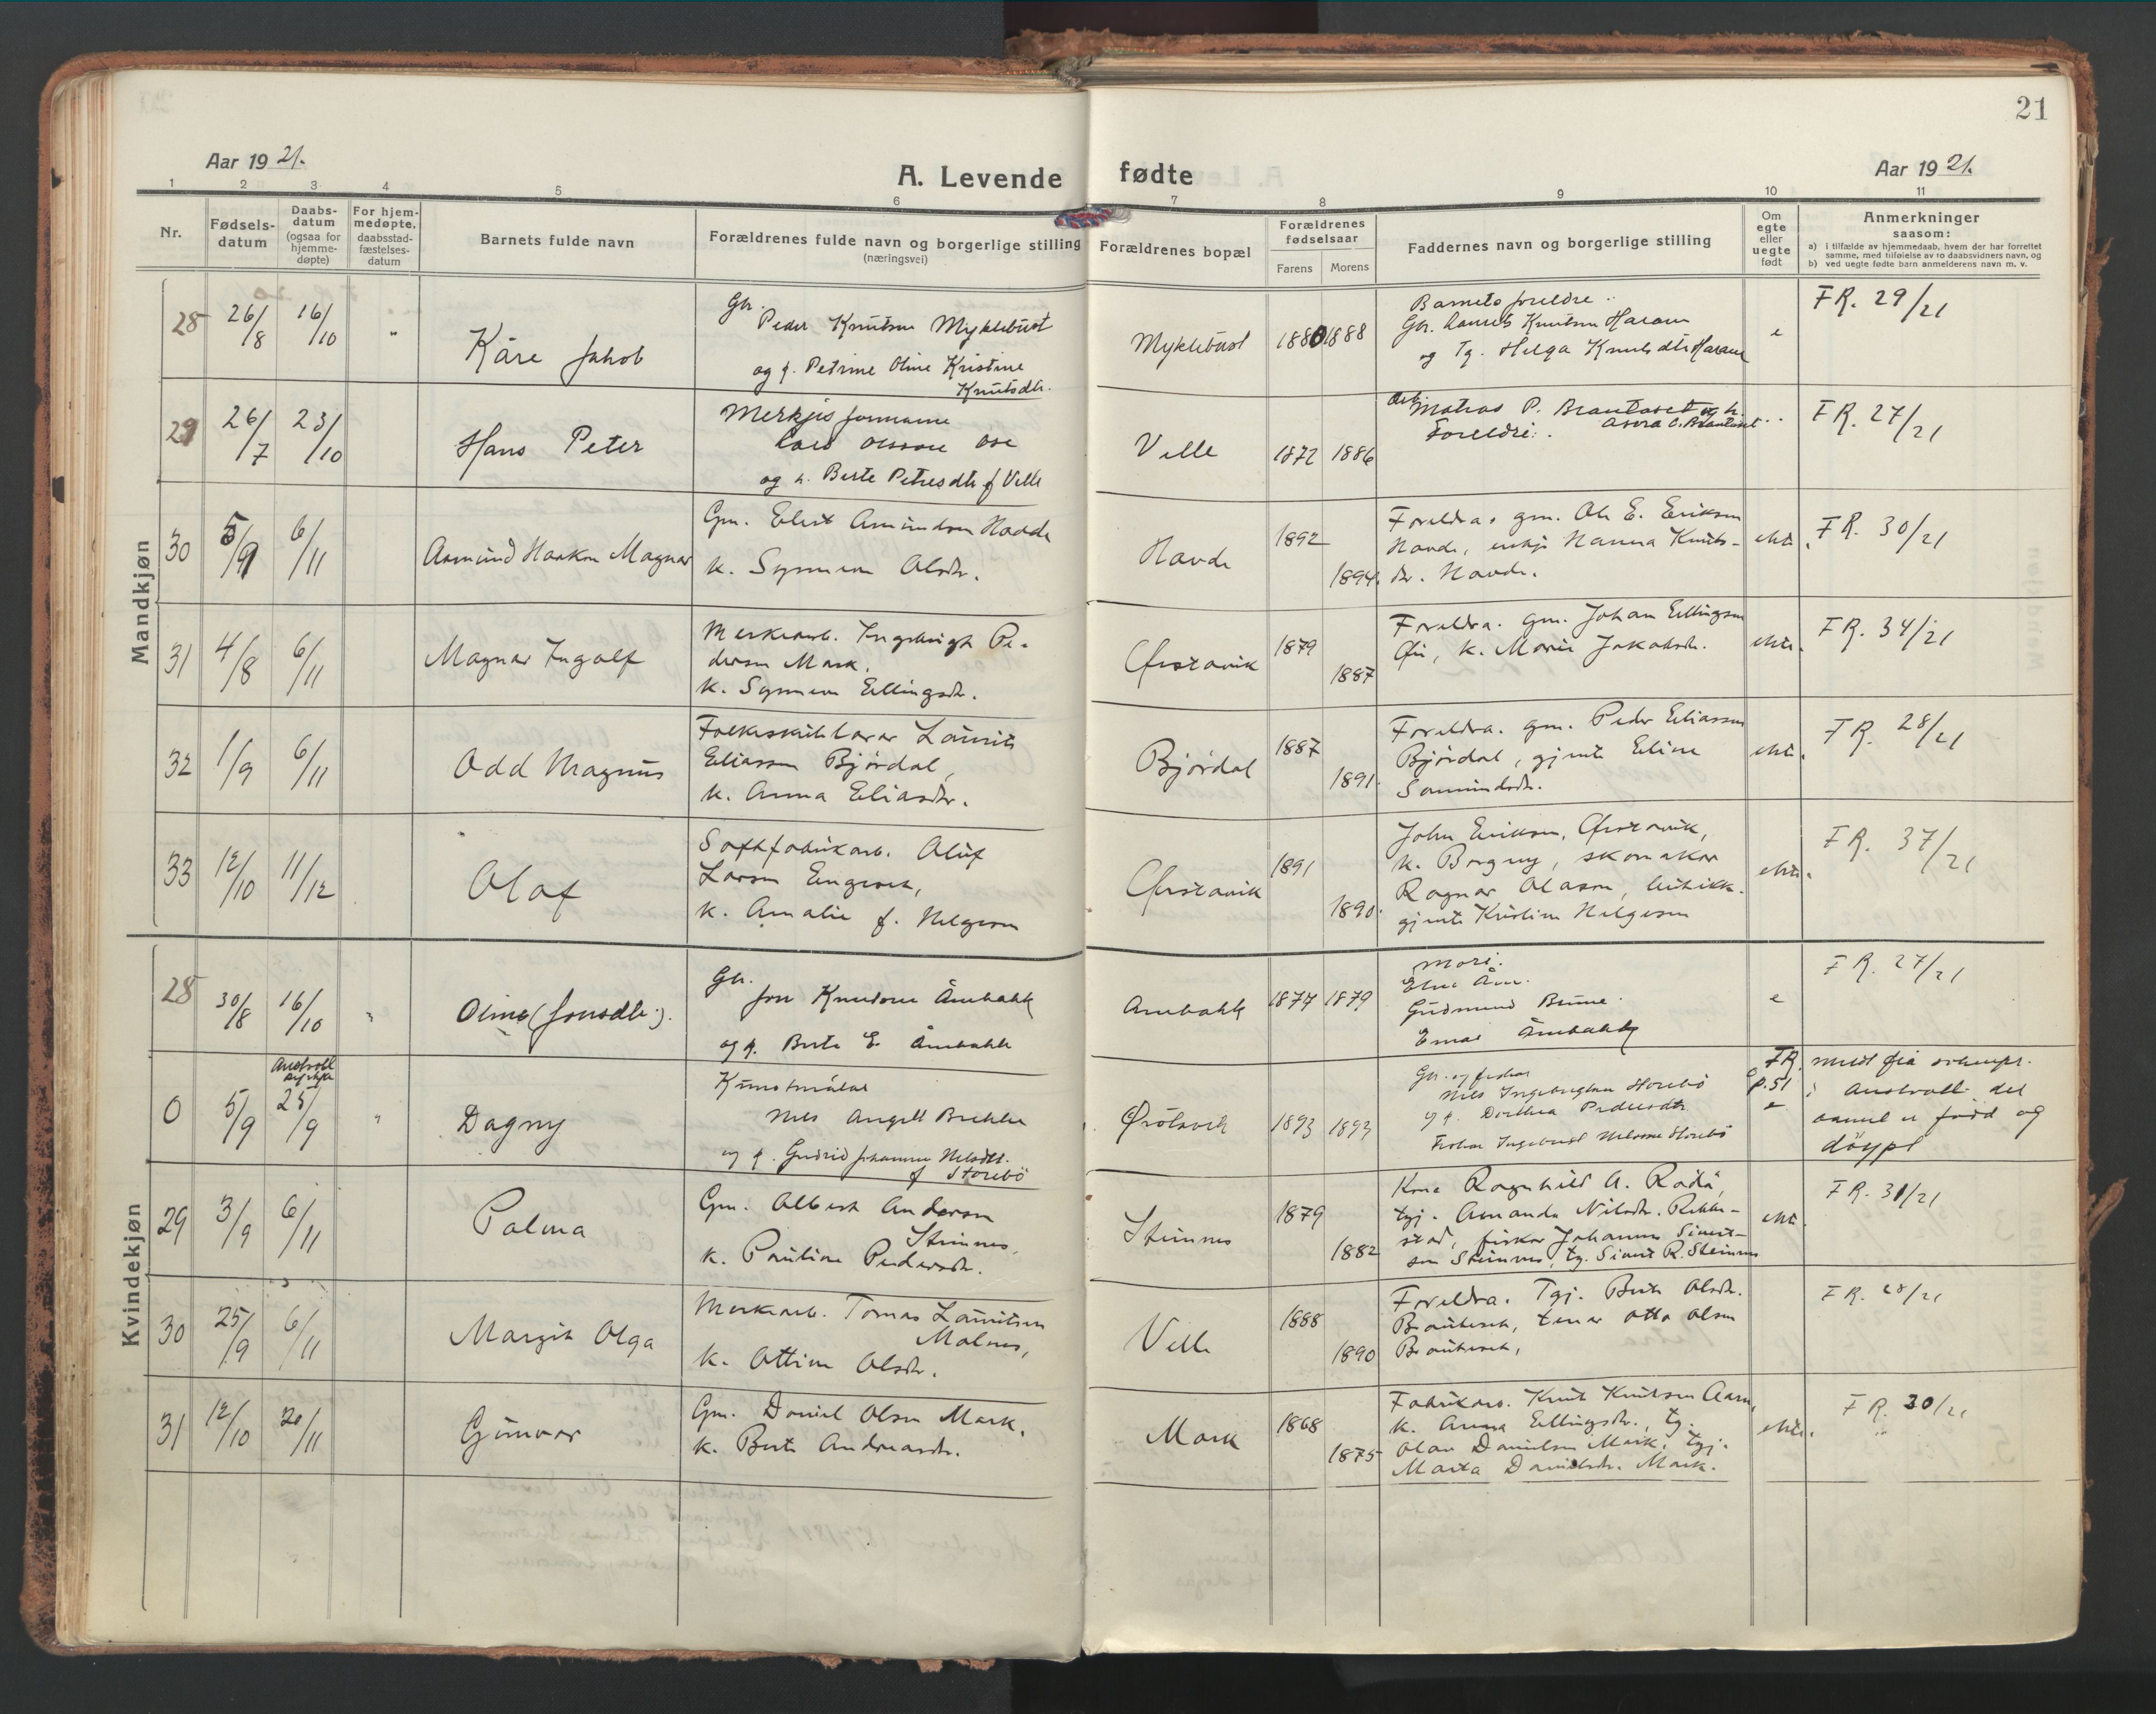 21
Aar 1921.
A. Levende fødte
Aar 1921.
1 2 3 4 5 6 7 8 9 10 11
Nr.
Fødsels-
datum
Daabs-
datum
(ogsaa for
hjemme-
døpte)
For hjem-
medøpte,
daabsstad-
fæstelses-
datum
Barnets fulde navn
Forældrenes fulde navn og borgerlige stilling
(næringsvei)
Forældrenes bopæl
Forældrenes
fødselsaar
Farens Morens
Faddernes navn og borgerlige stilling
Om
egte
eller
uegte
født
Anmerkninger
saasom:
a) i tilfælde av hjemmedaab, hvem der har forrettet
samme, med tilføielse av to daabsvidners navn, og
b) ved uegte fødte barn anmelderens navn m. v.
Mandkjøn
28 26/8 16/10 " Kåre Jakob
Gbr. Peder Knutsen Myklebust
og h. Petrine Oline Kristine
Knutsdtr.
Myklebust 1880 1888
Barnets foreldre
Gbr. Knutsen Haram
og Tg. Helga Knutsdtr Haram
e
FR. 29/21
29 26/7 23/10 Hans Peter
Ose
og h. Berte Petersdtr f Velle
Velle 1872 1886
P. Brautaset og h.
Foreldre
FR. 27/21
30 5/9 6/11 Asmund Haakon Magnar
Gm. Elert Amundson Havde
k. Synneva Olsdtr.
Havde 1892 1894.
Foreldra, gm. Ole E. Erikson
Havde, enkje Hanna Knuts-
dtr. Havde.
ekte.
FR. 30/21
31 4/8 6/11 Magnar Ingolf
Meierarb. Ingebrigt Pe-
dersen Mark.
k. Synneva Ellingsdtr.
Ørstavik 1879 1887
Foreldra. gm. Johan Ellingsen
k. Marie Jakobsdtr.
ekte.
FR. 34/21
32 1/9 6/11 Odd Magnus
Folkeskulelærar Laurits
Eliassen Bjørdal,
k. Anna Eliasdtr.
Bjørdal 1887 1891.
Foreldra. gm. Peder Eliassen
Bjørdal, gjente Eline
ekte.
FR. 28/21
33 12/10 11/12 Olaf
Saftfabrikarb. Oluf
Larsen Engeset,
k. Amalie f. Helgesen
Ørstavik 1891 1890.
John Eriksen, Ørstavik,
k. Borgny, skomakar
Ragnar Olason,
gjente Kristine Helgesen
ekte.
FR. 37/21
Kvindekjøn
28 30/8 16/10 " Oline (Jonsdtr.).
Gbr. Jon Knutson Åmbakk
og h. Berte E. Åmbakk
Åmbakk 1874 1879
Mori.
Gudmund Brune.
Åmbakk
e
FR. 27/21
0 5/9 25/9 " Dagny
Kunstmålar
Nils Angell Brekke
og h. Gudrid Johanna Nilsdtr.
f Storebö
1893 1893
Gbr. og fiskar
Nils Ingebrigtsen Storebö
og h. Dorthea Pedersdtr
Fiskar Ingebrigt Nilssone Storebö
FR. p. 51
e
i Austvoll. det
barnet er född og
döypt
29 3/9 6/11 Palma
Gm. Albert Andersen
Steinnes,
k. Pauline Pedersdtr.
Steinnes 1879 1882
Kone Ragnhild A.
tgj. Amanda Nilsdtr. Rekke-
stad, fiskar Johannes Sivert-
sen Steinnes, tg. Sivert R. Steinnes
ekte.
FR. 31/21
30 25/9 6/11 Margit Olga
Meierarb. Tomas Lauritsen
Malnes,
k. Ottine Olsdtr.
Velle 1888 1890
Foreldra. Tgj. Berte Olsdtr.
Brauteset, tenar Otto Olsen
Brauteset,
FR. 28/21
31 12/10 20/11 Gunvor
Gm. Daniel Olsen Mark.
k. Berte Andreasdtr.
Mark 1868 1875
Fabrikarb. Knut Knutsen Aam,
k. Anna Ellingsdtr., tg.
Olav Danielsen Mark, tgj.
Marta Danielsdtr. Mark.
ekte.
FR. 30/21